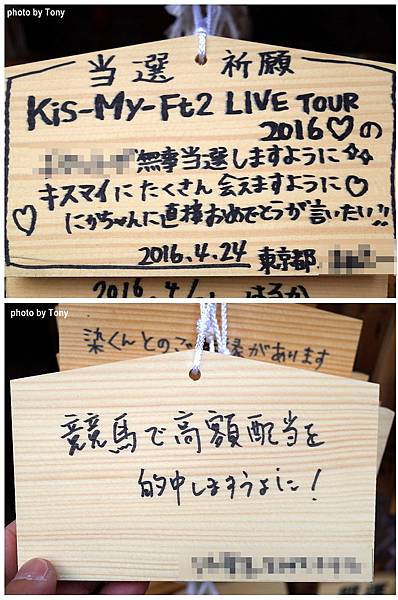 photo by Tony
当選 祈願
Kis-My-Ft2 LIVE TOUR
2016♡の
無事当選しますように☆☆
キスマイにたくさん会えますように♡
♡にかちゃんに直接おめでとうが言いたい!!
2016.4.24 東京都
2016.4/ はるか
photo by Tony
染くんとのご縁があります
競馬で高額配当を
的中しますように!